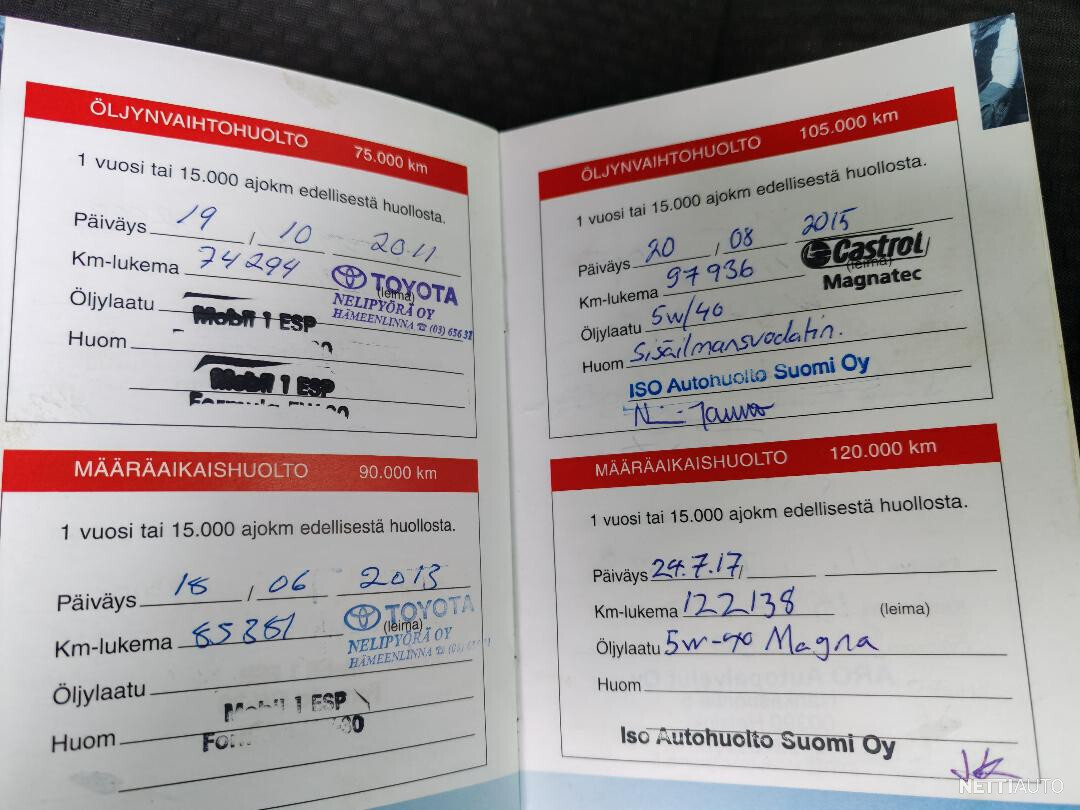 ÖLJYNVAIHTOHUOLTO 75.000 km
1 vuosi tai 15.000 ajokm edellisestä huollosta.
Päiväys 19 / 10 2011
Km-lukema 74294
TOYOTA
(leima)
NELIPYÖRÄ OY
HÄMEENLINNA ☎ (03) 656 31
Öljylaatu
Mobil 1 ESP
Huom
Mobil 1 ESP
Formula
MÄÄRÄAIKAISHUOLTO 90.000 km
1 vuosi tai 15.000 ajokm edellisestä huollosta.
Päiväys 18 / 06 2013
Km-lukema 85381
TOYOTA
(leima)
NELIPYÖRÄ OY
HÄMEENLINNA ☎
Öljylaatu
Mobil 1 ESP
Huom
ÖLJYNVAIHTOHUOLTO 105.000 km
1 vuosi tai 15.000 ajokm edellisestä huollosta.
Päiväys 20 / 08 2015
Km-lukema 97936
Castrol
(leima)
Magnatec
Öljylaatu 5w/40
Huom Sisäilmansuodatin.
ISO Autohuolto Suomi Oy
MÄÄRÄAIKAISHUOLTO 120.000 km
1 vuosi tai 15.000 ajokm edellisestä huollosta.
Päiväys 24.7.17/
Km-lukema 122138 (leima)
Öljylaatu 5w-40 Magna
Huom
Iso Autohuolto Suomi Oy
NETTIAUTO